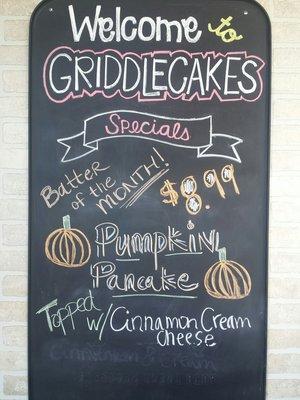 Welcome to
GRIDDLECAKES
Specials
Batter
of the
MONTH!
$8.99
Pumpkin
Pancake
Topped
w/ Cinnamon Cream
cheese